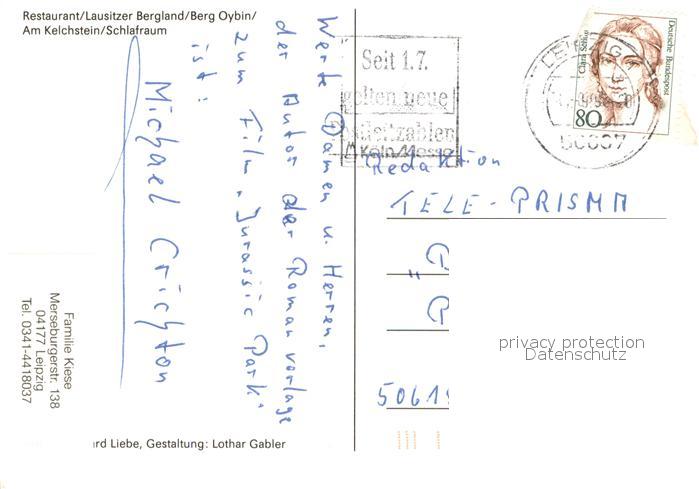 Restaurant/Lausitzer Bergland/Berg Oybin/
Am Kelchstein/Schlafraum
Werte Damen u. Herren,
der Autor der Romanvorlage
zum Film „Jurassic Park"
ist:
Michael Crichton
Familie Kiese
Merseburgerstr. 138
04177 Leipzig
Tel. 0341-4418037
rd Liebe, Gestaltung: Lothar Gabler
Seit 1.7.
gelten neue
Postleitzahlen
Köln/Messe
Deutsche Bundespost
80
LEIPZIG
Redaktion
TELE-PRISMA
5061
privacy protection
Datenschutz